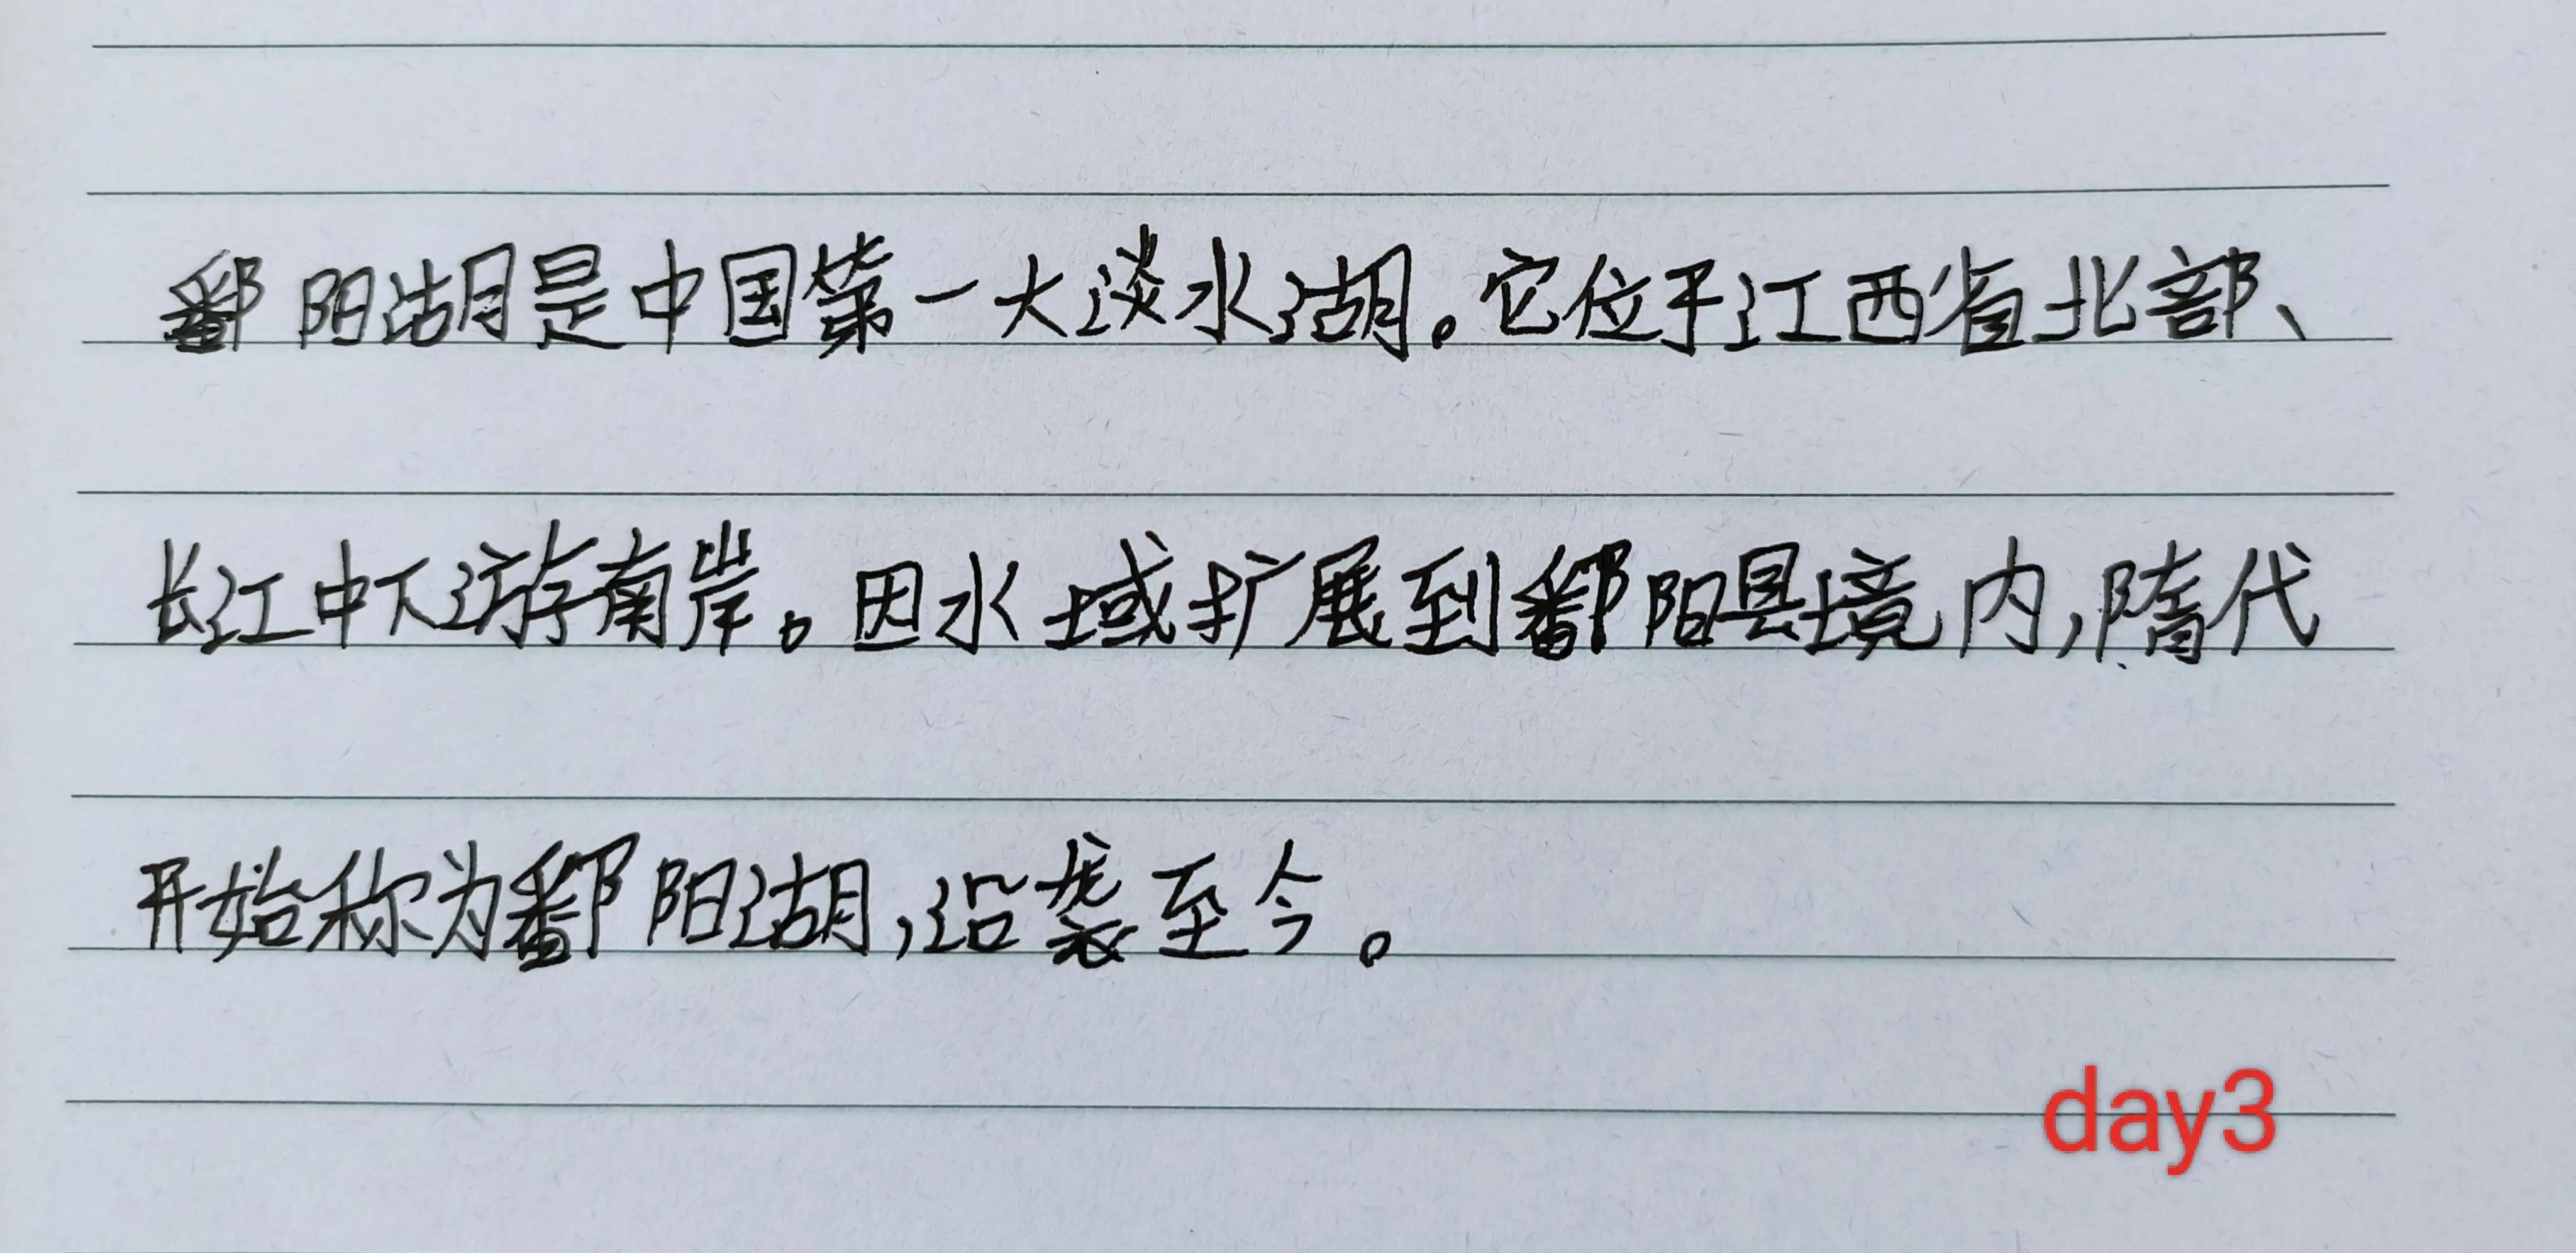 鄱阳湖是中国第一大淡水湖。它位于江西省北部、
长江中下游南岸。因水域扩展到鄱阳县境内,隋代
开始称为鄱阳湖,沿袭至今。
day3